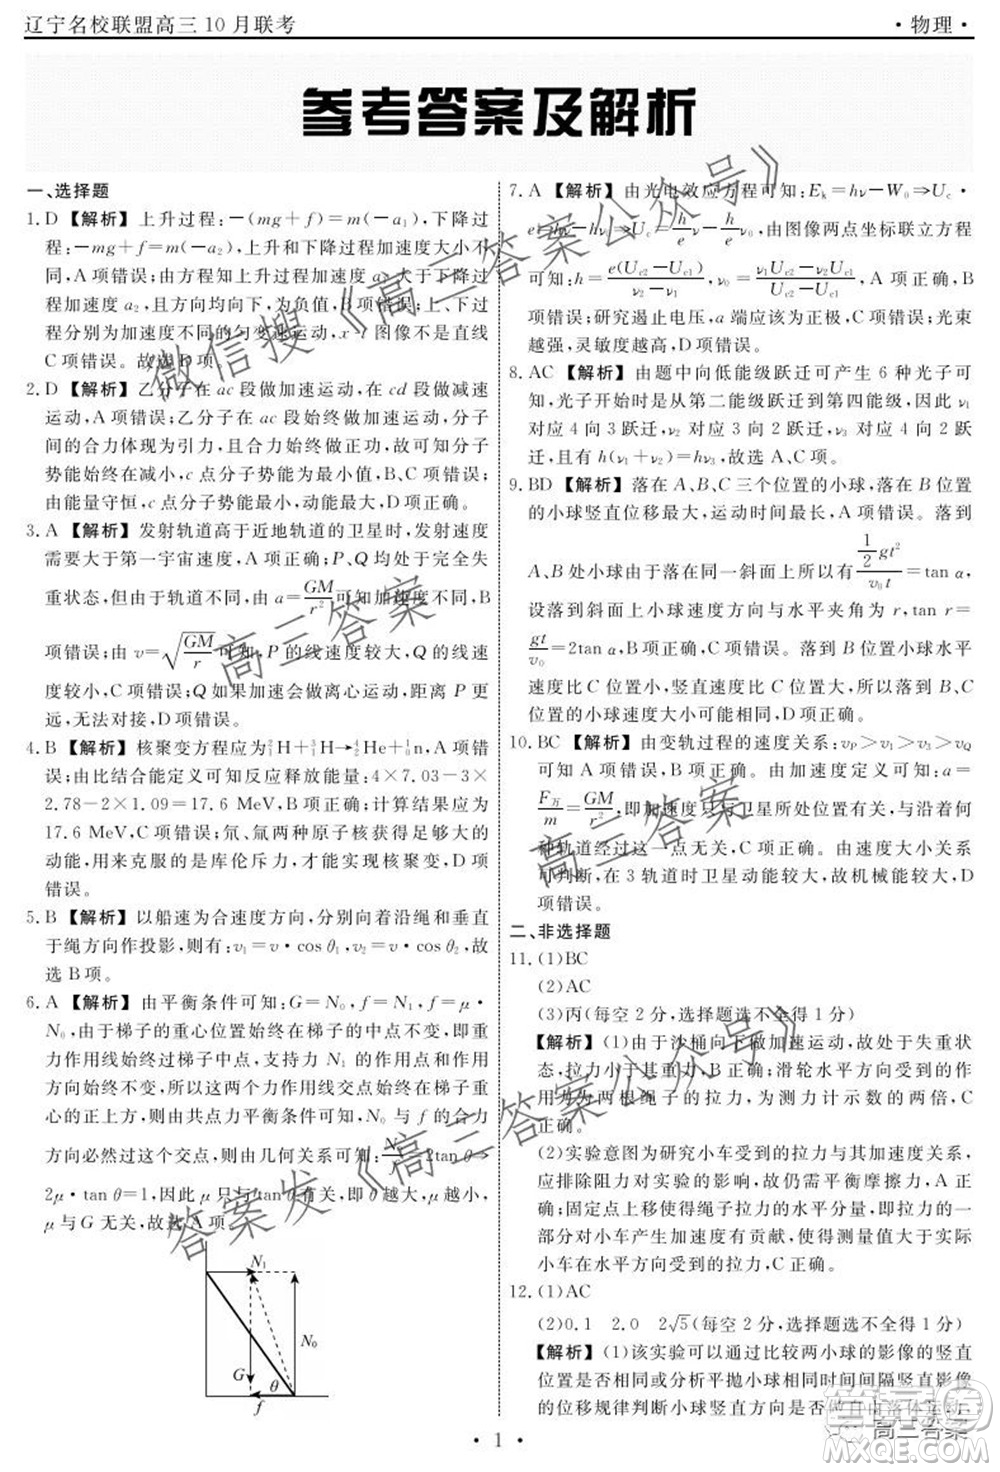 辽宁名校联盟高三10月联考
·物理·
参考答案及解析
一、选择题
1. D 【解析】上升过程:−(mg+f)=m(−a₁),下降过
程:−mg+f=m(−a₂),上升和下降过程加速度大小不
同,A项错误;由方程知上升过程加速度a₁大于下降过
程加速度a₂,且方向均向下,为负值,B项错误;上升下降过
程分别为加速度不同的匀变速运动,x-t图像不是直线
C项错误。故选D项。
2. D 【解析】乙分子在ac段做加速运动,在cd段做减速
运动,A项错误;乙分子在ac段始终做加速运动,分子
间的合力体现为引力,且合力始终做正功,故可知分子
势能始终在减小,c点分子势能为最小值,B、C项错误;
由能量守恒,c点分子势能最小,动能最大,D项正确。
3. A 【解析】发射轨道高于近地轨道的卫星时,发射速度
需要大于第一宇宙速度,A项正确;P、Q均处于完全失
重状态,但由于轨道不同,由a=GM/r²可知加速度不同,B
项错误;由v=√(GM/r)可知,P的线速度较大,Q的线速
度较小,C项错误;Q如果加速会做离心运动,距离P更
远,无法对接,D项错误。
4. B 【解析】核聚变方程应为²₁H+³₁H→⁴₂He+¹₀n,A项错
误;由比结合能定义可知反应释放能量:4×7.03−3×
2.78−2×1.09=17.6 MeV,B项正确;计算结果应为
17.6 MeV,C项错误;氘、氚两种原子核获得足够大的
动能,用来克服的是库伦斥力,才能实现核聚变,D项
错误。
5. B 【解析】以船速为合速度方向,分别向着沿绳和垂直
于绳方向作投影,则有:v₁=v·cos θ₁,v₂=v·cos θ₂,故
选B项。
6. A 【解析】由平衡条件可知:G=N₀,f=N₁,f=μ·
N₀,由于梯子的重心位置始终在梯子的中点不变,即重
力作用线始终过梯子中点,支持力N₁的作用点和作用
线也始终不变,所以这两个力作用线交点始终在梯子重
心的正上方,由共点力平衡条件可知,N₀与f的合力
方向必然过这个交点,由几何关系知:N₀/f=2tan θ⇒
2μ·tan θ=1,因此μ只与tan θ有关,即θ越大,μ越小,
μ与G无关,故选A项。
N₁
N₀
G
θ
f
7. A 【解析】由光电效应方程可知:Eₖ=hν−W₀⇒U_c·
e=hν−hν₀⇒U_c=h/e ν−h/e ν₀,由图像两点坐标联立方程
可知:h=e(U_c2−U_c1)/(ν₂−ν₁),ν₀=(ν₁U_c2−ν₂U_c1)/(U_c2−U_c1),A项正确,B
项错误;研究遏止电压,a端应为正极,C项错误;光束
越强,灵敏度越高,D项错误。
8. AC 【解析】由题中向低能级跃迁可产生6种光子可
知,光子开始时是从第二能级跃迁到第四能级,因此ν₁
对应4向3跃迁,ν₂对应3向2跃迁,ν₃对应4向2跃
迁,且有h(ν₁+ν₂)=hν₃,故选A、C项。
9. BD 【解析】落在A、B、C三个位置的小球,落在B位置
的小球竖直位移最大,运动时间最长,A项错误。落到
A、B处小球由于落在同一斜面上所以有(½gt²)/(v₀t)=tan α,
设落到斜面上小球速度方向与水平夹角为r,tan r=
gt/v₀=2tan α,B项正确。落到B位置的小球水平
速度比C位置小,竖直速度比C位置大,所以落到B、
C位置的小球速度大小可能相同,D项正确。
10. BC 【解析】由变轨过程的速度关系:v_P>v₁>v₃>v_Q
可知A项错误;由万有引力提供向心力可知:a=
F万/m=GM/r²,即加速度只与卫星所处位置有关,与沿着何
种轨道经过这一点无关,C项正确。由速度大小关系
可判断,在3轨道时卫星动能较大,故机械能较大,D
项错误。
二、非选择题
11. (1)BC
(2)AC
(3)丙(每空2分,选择题选不全得1分)
【解析】(1)由于沙桶向下做加速运动,故处于失重状
态,拉力小于重力,A项错误,B项正确;滑轮水平方向
拉力为两根绳子的拉力,为测力计示数的两倍,C项
正确。
(2)实验意图研究小车受到的拉力和加速度关系,故
应排除阻力对实验的影响,故应平衡摩擦力,A项正
确;固定定点上移使得绳子拉力的水平分量,即真实
对小车产生加速度有贡献的力变小,故测量值大于实际
小车在水平方向受到的拉力,C项正确。
12. (1)AC
(2)0.1 2.0 2√5(每空2分,选择题选不全得1分)
【解析】(1)该实验需要比较两小球的影像的竖直
位置是否相同,并分析平抛小球相同时间间隔竖直方向
的位移规律判断小球竖直方向是否做自由落体运动。
· 1 ·
微信搜《高三答案公众号》
高三答案
高三答案
答案发《高三答案公众号》
高三答案
答案圈
MXQE.COM